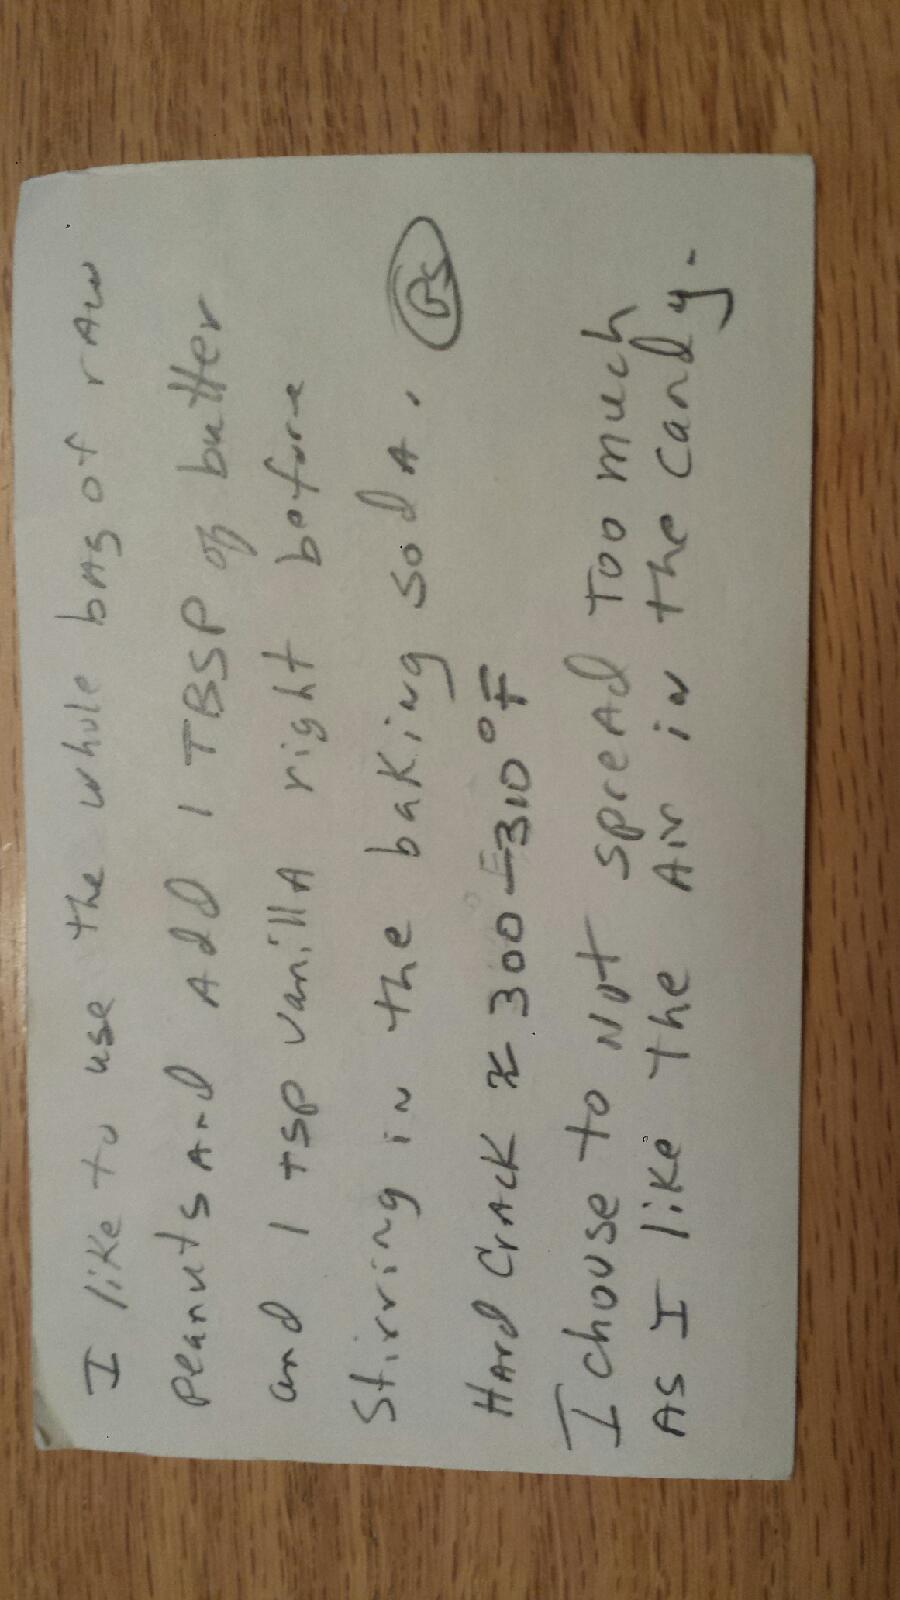 I like to use the whole bag of raw
peanuts and add 1 TBSP of butter
and 1 tsp vanilla right before
stirring in the baking soda. BS
Hard Crack ≈ 300-310°F
I chouse to not spread too much
as I like the air in the candy.